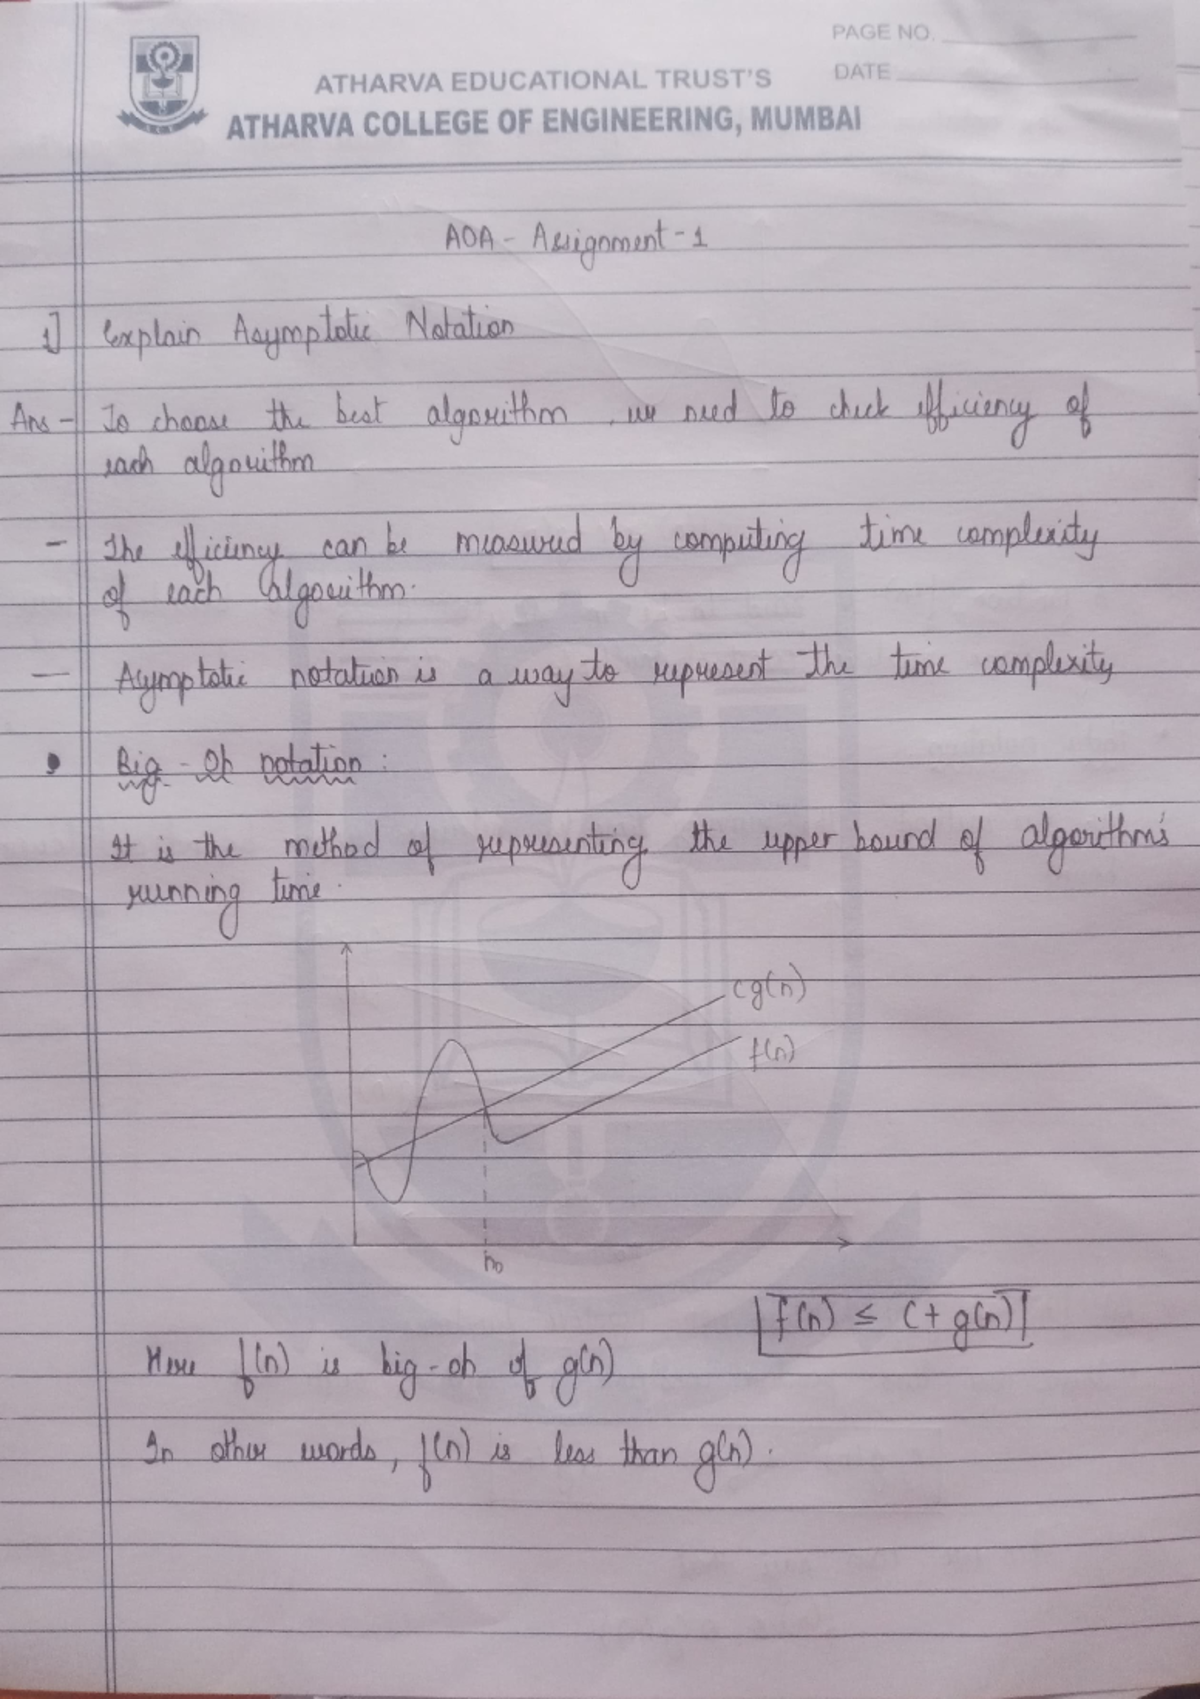 PAGE NO.
DATE
ATHARVA EDUCATIONAL TRUST'S
ATHARVA COLLEGE OF ENGINEERING, MUMBAI
AOA - Assignment - 1
1] Explain Asymptotic Notation
Ans - To choose the best algorithm, we need to check efficiency of
each algorithm
- The efficiency can be measured by computing time complexity
of each algorithm.
- Asymptotic notation is a way to represent the time complexity
• Big - Oh notation :
It is the method of representing the upper bound of algorithm's
running time.
cg(n)
f(n)
n₀
f(n) ≤ c + g(n)
Here f(n) is big-oh of g(n)
In other words, f(n) is less than g(n).